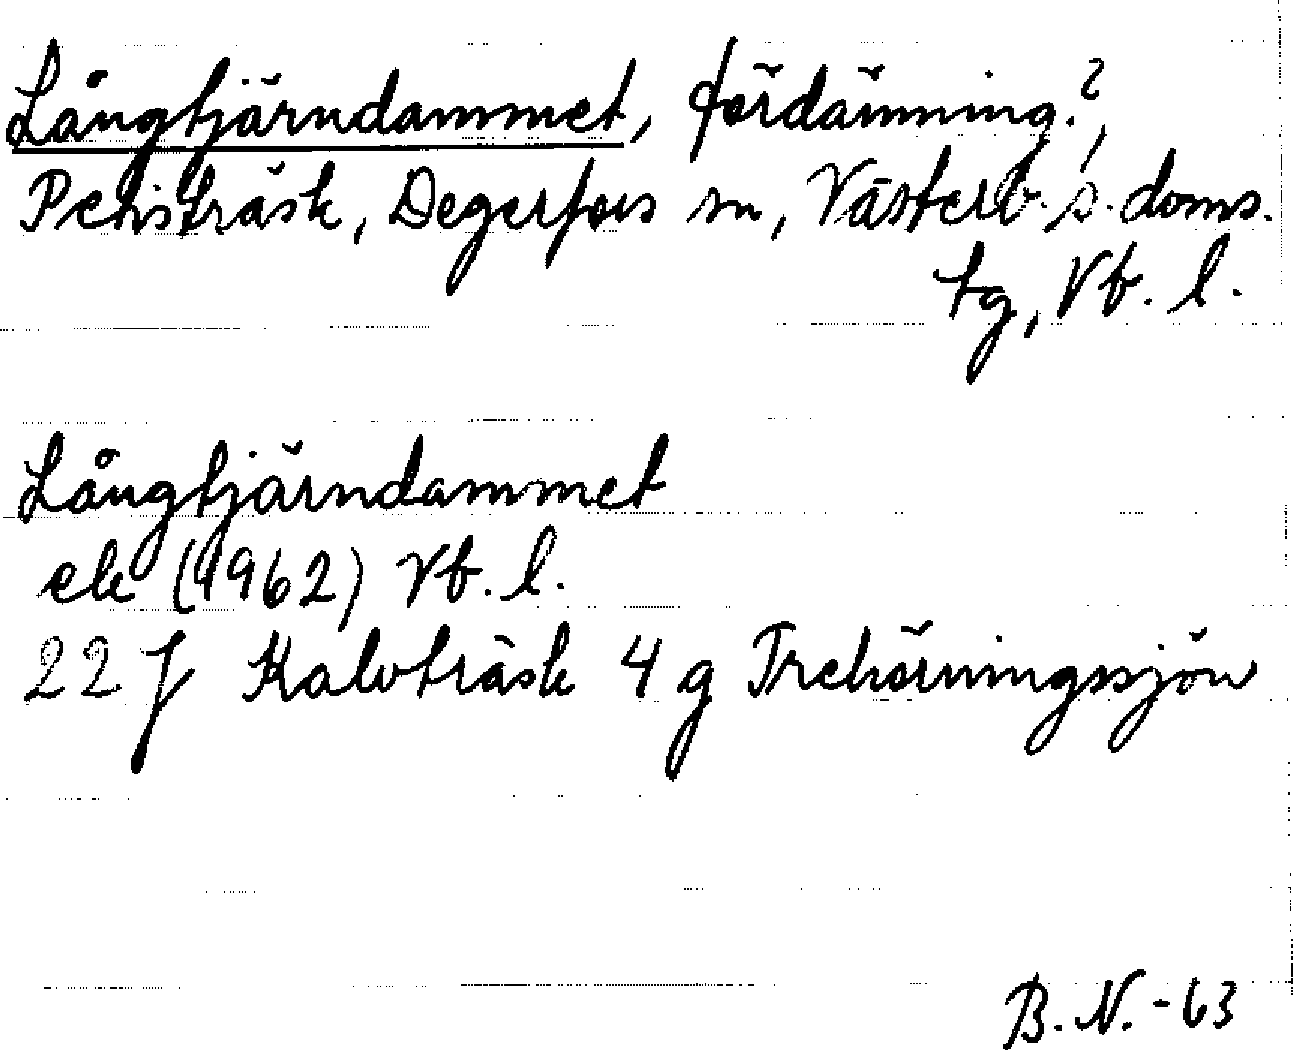 Långtjärndammet, fördämning?,
Pensträsk, Degerfors sn, Västerb. s. doms.
tg, Vb. l.
Långtjärndammet
ek (1962) Vb. l.
22 J Kalvträsk 4 g Trehörningssjön
B. N. - 63